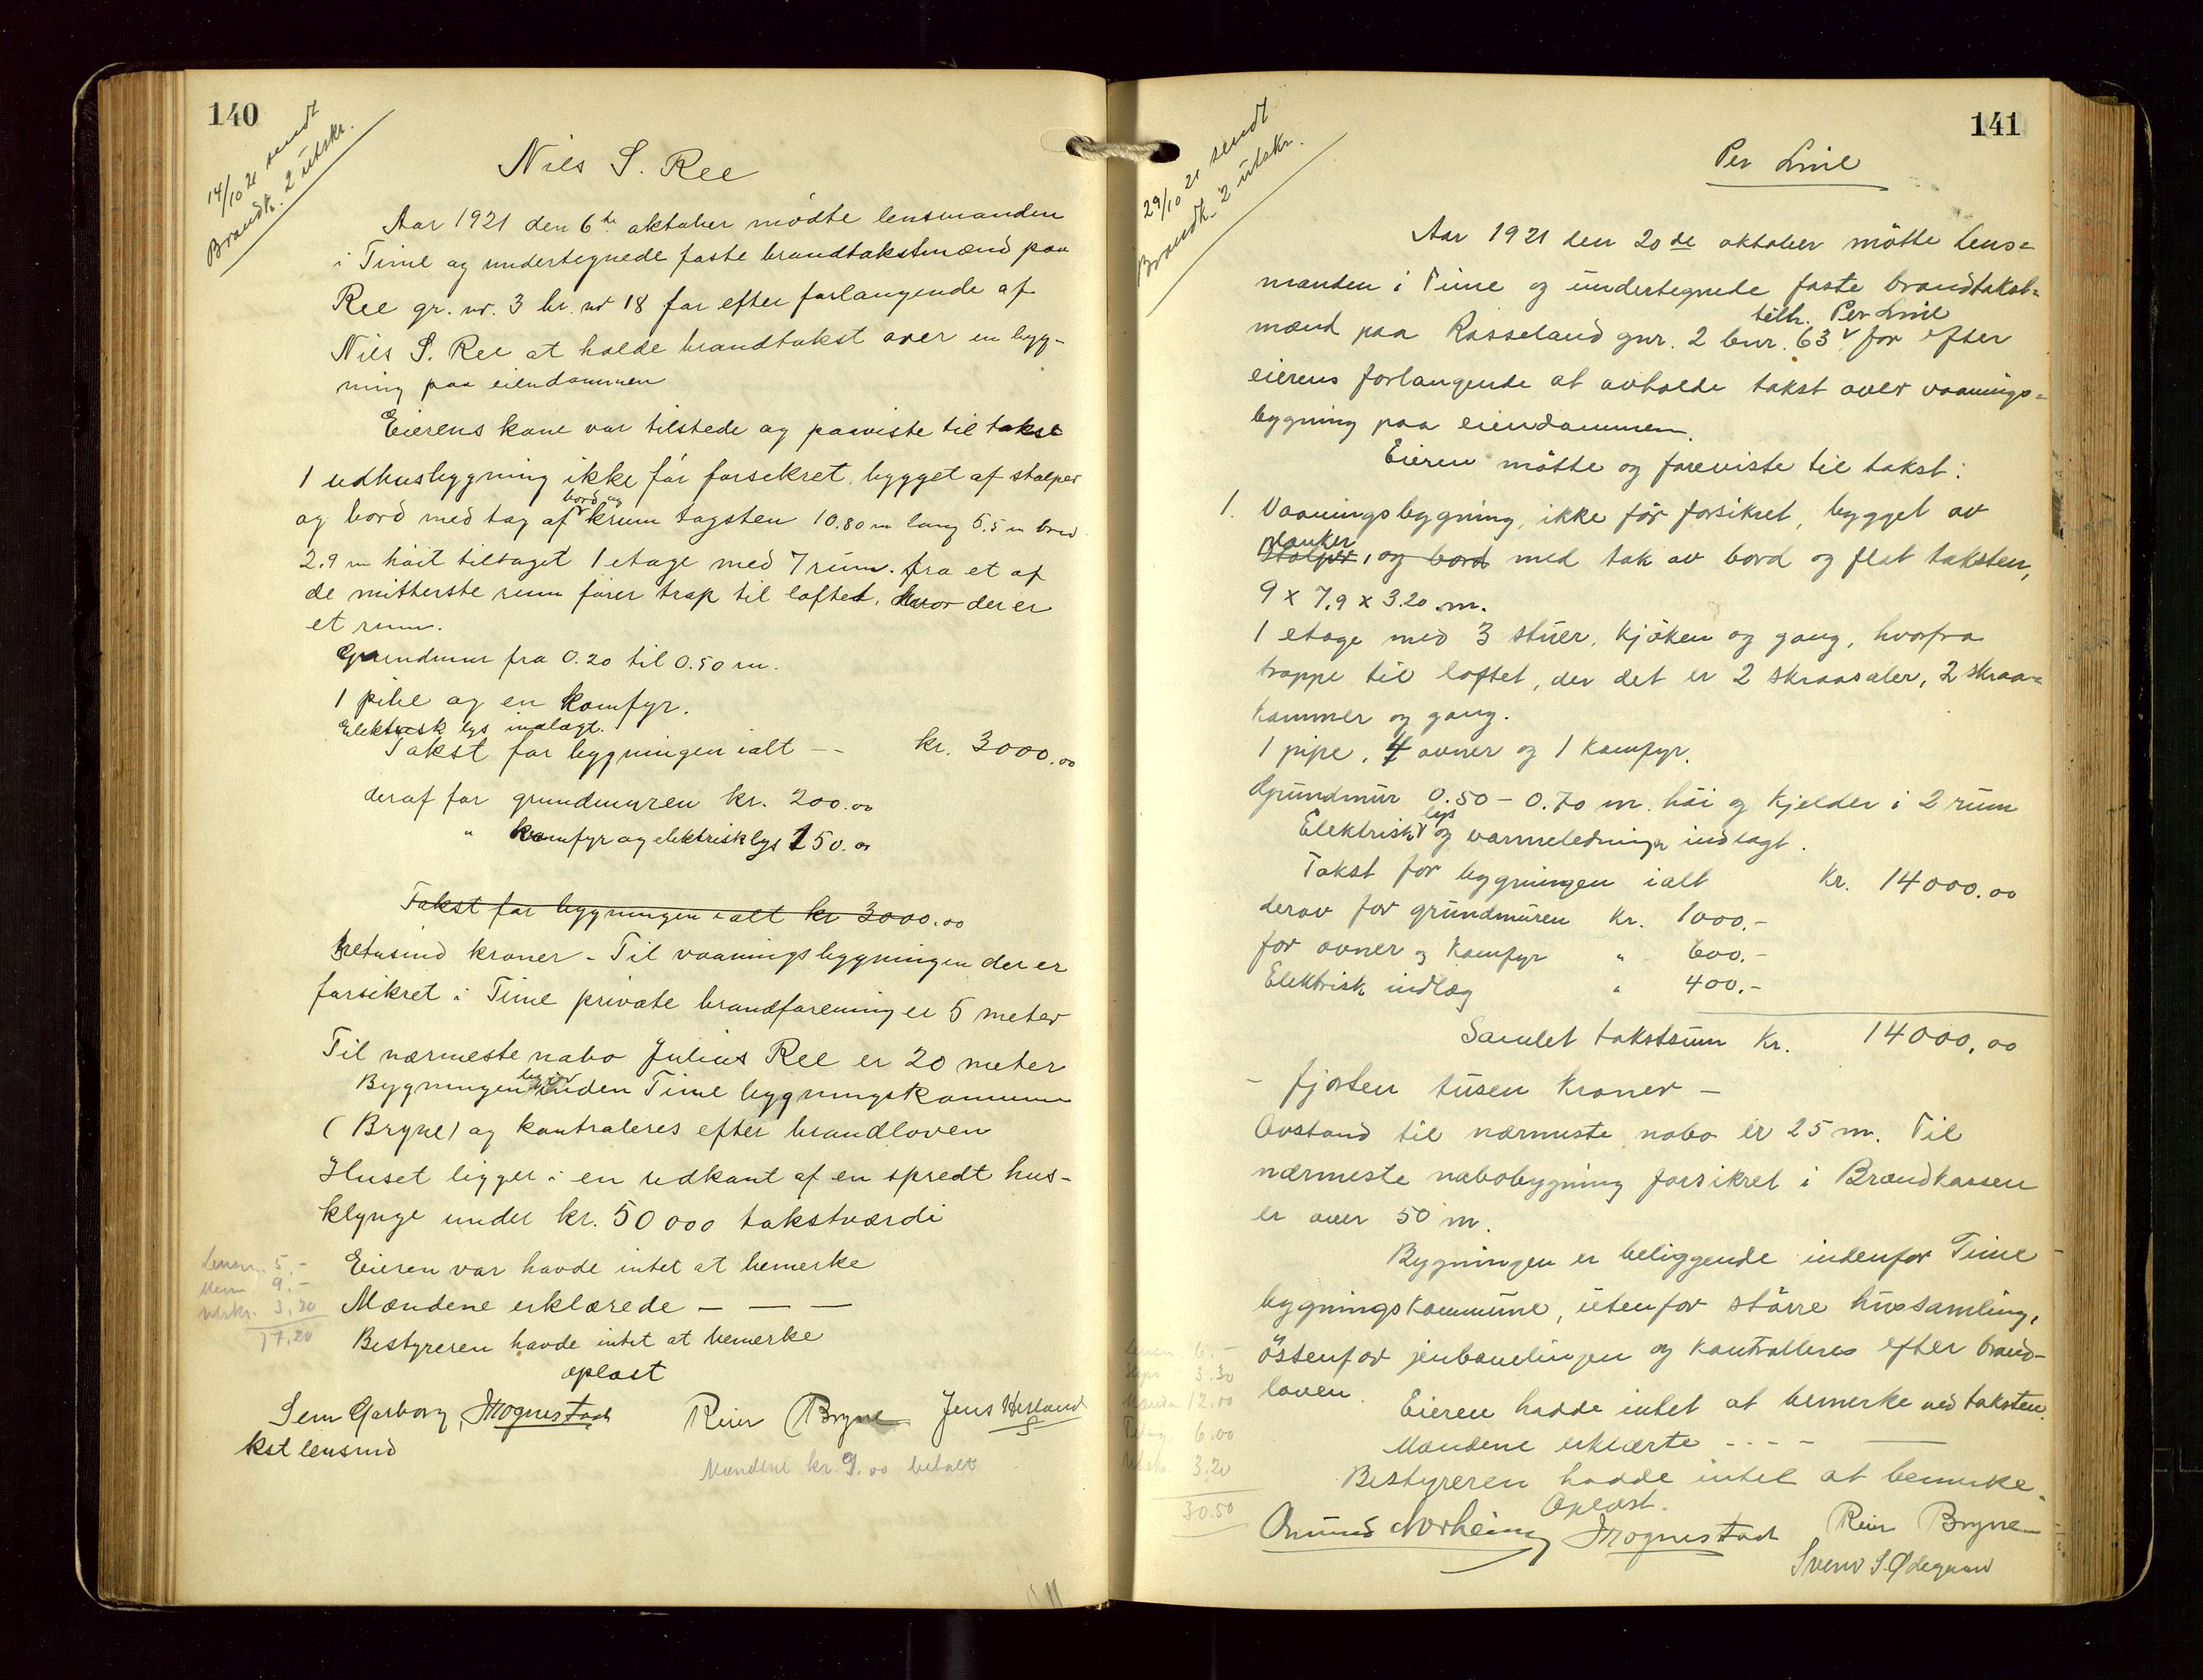 140
14/10 21 sendt
Brandk. 2 utskr.
Nils S. Ree
Aar 1921 den 6te oktober mødte lensmanden
i Time og undertegnede faste brandtakstmænd paa
Ree gr. nr. 3 br. nr 18 for efter forlangende af
Nils S. Ree at holde brandtakst over en byg-
ning paa eiendommen
Eierens kone var tilstede og paaviste til takst
1 udhusbygning ikke før forsekret bygget af stolper
og bord med tag af bord og krum tagsten 10.80 m lang 5.5 m bred
2.9 m høit tiltaget 1 etage med 7 rum. fra et af
de mitterste rum fører trap til loftet, hvor der er
et rum.
Grundmur fra 0.20 til 0.50 m.
1 pibe og en komfyr.
Elektrisk lys indlagt.
Takst for bygningen ialt -- kr. 3000.00
deraf for grundmuren kr. 200.00
" komfyr og elektrisk lys 150.00
Takst for bygningen ialt kr 3000.00
tretusind kroner - Til vaaningsbygningen der er
forsikret i Time private brandforening er 5 meter
Til nærmeste nabo Julius Ree er 20 meter
Bygningen ligger inden Time bygningskommune
(Bryne) og kontroleres efter brandloven
Huset ligger i en udkant af en spredt hus-
klynge under kr. 50 000 takstværdi
Eieren var havde intet at bemerke
Mændene erklærede — — —
Bestyreren havde intet at bemerke
oplæst
Lensm. 5.-
Menn 9.-
Utskr. 3.20
17.20
Sem Garborg Mognestad Reier Bryne Jens Hesland
kst lensmd
Mændene kr. 9.00 betalt
141
29/10 21 sendt
Brandk. 2 utskr.
Per Line
Aar 1921 den 20de oktober møtte lens=
manden i Time og undertegnede faste brandtakst=
mænd paa Rosseland gnr. 2 bnr. 63 tilh. Per Line for efter
eierens forlangende at avholde takst over vaanings=
bygning paa eiendommen.
Eieren møtte og foreviste til takst:
1. Vaaningsbygning, ikke før forsikret, bygget av
stolper planker, og bord med tak av bord og flat taksten,
9 x 7,9 x 3.20 m.
1 etage med 3 stuer, kjøken og gang, hvorfra
trappe til loftet, der det er 2 skraasaler, 2 skraa=
kammer og gang.
1 pipe, 4 ovner og 1 komfyr.
Grundmur 0.50 - 0.70 m. høi og kjelder i 2 rum
Elektrisk lys og varmeledninger indlagt.
Takst for bygningen ialt kr. 14000.00
derav for grundmuren kr. 1000.-
for ovner og komfyr " 600.-
Elektrisk indlæg " 400.-
Samlet takstsum kr. 14000,00
- fjorten tusen kroner -
Avstand til nærmeste nabo er 25 m. Til
nærmeste nabobygning forsikret i Brandkassen
er over 50 m.
Bygningen er beliggende indenfor Time
bygningskommune, utenfor større hussamling,
østenfor jernbanelinjen og kontrolleres efter brand-
loven.
Eieren hadde intet at bemerke ved taksten.
Mændene erklærte - - - -
Bestyreren hadde intet at bemerke.
Oplæst.
Lensm 6.-
3.30
12.00
6.00
Utskr. 3.20
30.50
Omund Norheim Mognestad Reier Bryne
Svend S. Ødegaard